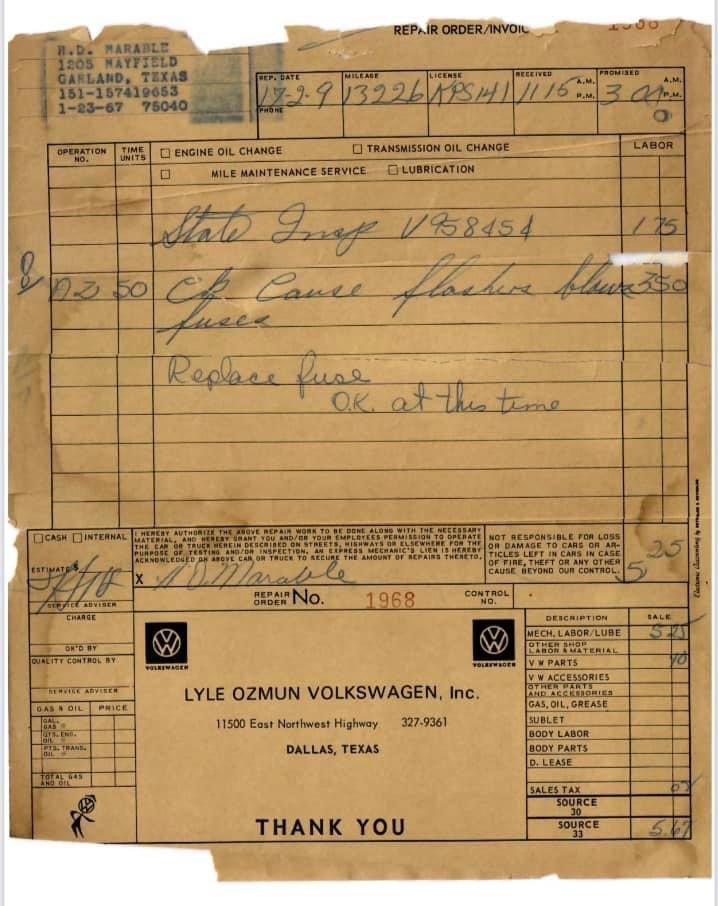 REPAIR ORDER/INVOIC
1968
H.D. MARABLE
1205 MAYFIELD
GARLAND, TEXAS
151-157419653
1-23-67 75040
REP. DATE MILEAGE LICENSE RECEIVED A.M. P.M. PROMISED A.M. P.M.
12-2-9 13226 KPS141 11 15 3 00
PHONE
OPERATION NO. TIME UNITS ENGINE OIL CHANGE TRANSMISSION OIL CHANGE LABOR
MILE MAINTENANCE SERVICE LUBRICATION
State Insp V958454 1 75
A2 50 Ck Cause flashers blows 3 50
fuses
Replace fuse
O.K. at this time
CASH INTERNAL
I HEREBY AUTHORIZE THE ABOVE REPAIR WORK TO BE DONE ALONG WITH THE NECESSARY
MATERIAL, AND HEREBY GRANT YOU AND/OR YOUR EMPLOYEES PERMISSION TO OPERATE
THE CAR OR TRUCK HEREIN DESCRIBED ON STREETS, HIGHWAYS OR ELSEWHERE FOR THE
PURPOSE OF TESTING AND/OR INSPECTION. AN EXPRESS MECHANIC'S LIEN IS HEREBY
ACKNOWLEDGED ON ABOVE CAR OR TRUCK TO SECURE THE AMOUNT OF REPAIRS THERETO.
NOT RESPONSIBLE FOR LOSS
OR DAMAGE TO CARS OR AR-
TICLES LEFT IN CARS IN CASE
OF FIRE, THEFT OR ANY OTHER
CAUSE BEYOND OUR CONTROL.
5 25
ESTIMATE $
X H D Marable
SERVICE ADVISER
REPAIR ORDER No. 1968 CONTROL NO.
CHARGE
OK'D BY
QUALITY CONTROL BY
SERVICE ADVISER
GAS & OIL PRICE
GAL. GAS @
QTS. ENG. OIL @
PTS. TRANS. OIL @
TOTAL GAS AND OIL
VOLKSWAGEN VOLKSWAGEN
LYLE OZMUN VOLKSWAGEN, Inc.
11500 East Northwest Highway 327-9361
DALLAS, TEXAS
THANK YOU
DESCRIPTION SALE
MECH. LABOR/LUBE 5 25
OTHER SHOP LABOR & MATERIAL
V W PARTS 40
V W ACCESSORIES
OTHER PARTS AND ACCESSORIES
GAS, OIL, GREASE
SUBLET
BODY LABOR
BODY PARTS
D. LEASE
SALES TAX 02
SOURCE 30
SOURCE 33 5.67